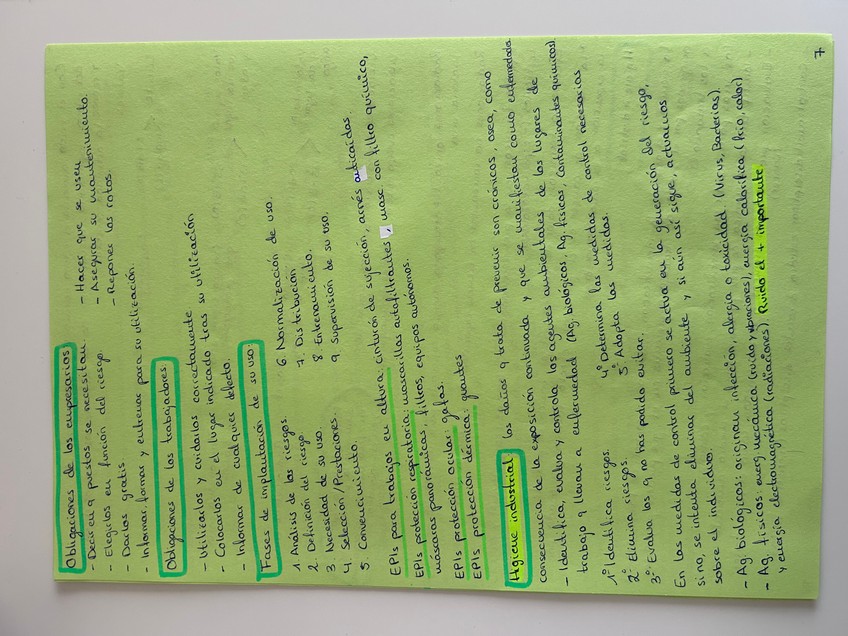 Obligaciones de los empresarios
- Decir en q puestos se necesitan.
- Elegirlos en función del riesgo
- Darlos gratis
- Informar, formar y entrenar para su utilización.
- Hacer que se usen
- Asegurar su mantenimiento.
- Reponer los rotos.
Obligaciones de los trabajadores:
- Utilizarlos y cuidarlos correctamente
- Colocarlos en el lugar indicado tras su utilización
- Informar de cualquier defecto.
Fases de implantación de su uso:
1. Análisis de los riesgos.
2. Definición del riesgo
3. Necesidad de su uso.
4. Selección/Prestaciones.
5 Convencimiento.
6. Normalización de uso.
7. Distribución
8 Entrenamiento.
9 Supervisión de su uso.
EPIs para trabajos en altura: cinturón de sujección, arnés anticaídas
EPIs protección respiratoria: mascarillas autofiltrantes, masc con filtro químico,
máscaras panorámicas, filtros, equipos autónomos.
EPIs protección ocular: gafas.
EPIs protección dérmica: guantes
Higiene industrial: los daños q trata de prevenir son crónicos, osea, como
consecuencia de la exposición continuada y que se manifiestan como enfermedades
- Identifica, evalua y controla los agentes ambientales de los lugares de
trabajo q llevan a enfermedad (Ag. biológicos, Ag. físicos, Contaminantes químicos)
1º Identifica riesgos.
2º Elimina riesgos.
3º Evalua los q no has podido evitar.
4º Determina las medidas de control necesarias
5º Adopta las medidas.
En las medidas de control primero se actua en la generación del riesgo,
si no, se intenta eliminar del ambiente y si aún así sigue, actuamos
sobre el individuo.
- Ag. biológicos: originan infección, alergia o toxicidad (Virus, Bacterias).
- Ag. físicos: energ mecánica (ruido y vibraciones), energía calorífica (frío, calor)
y energía electromagnética (radiaciones). Ruido el + importante
7